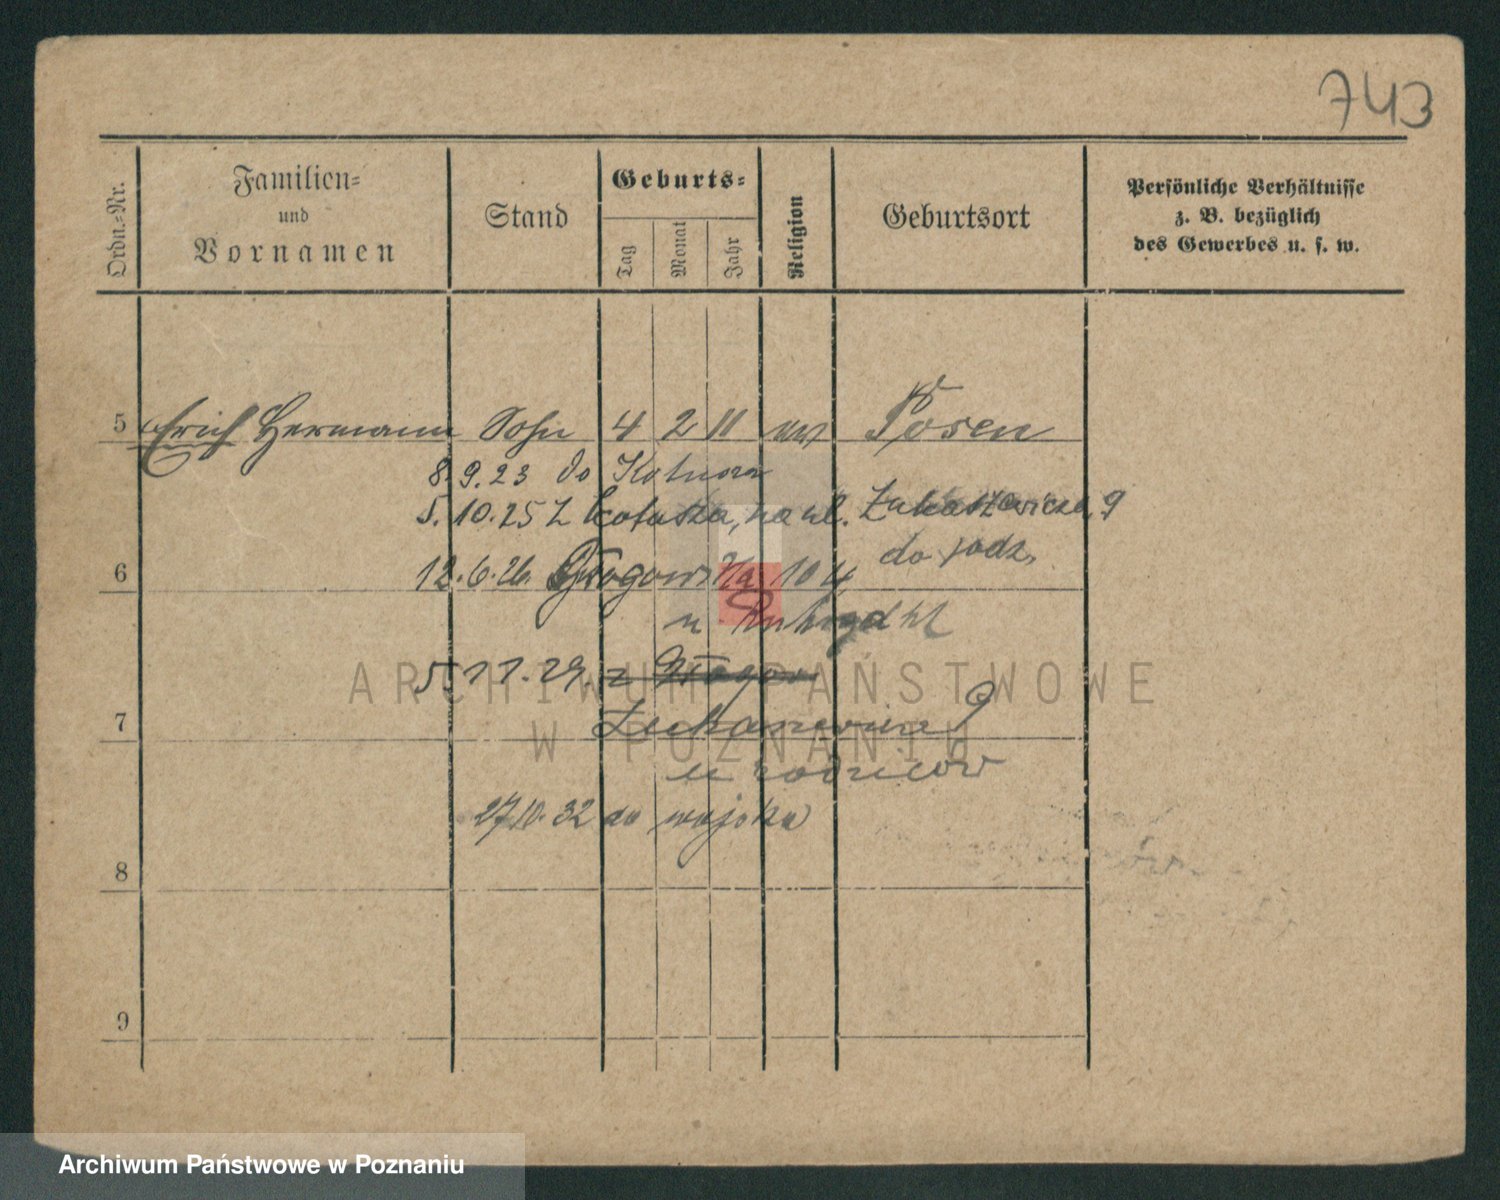 743
Ordn.-Nr.
Familien-
und
Vornamen
Stand
Geburts-
Tag
Monat
Jahr
Religion
Geburtsort
Persönliche Verhältnisse
z. B. bezüglich
des Gewerbes u. s. w.
5 Erich Hermann Sohn 4 2 11 ev Posen
8.9.23 do
5.10.25 z na ul. Łukaszewicza 9
do rodz.
6 12.6.26. Głogowska 104
u
5.11.29. z Głogow
7 Łukaszewicza 9
u rodziców
27.10.32 do wojska
8
9
ARCHIWUM PAŃSTWOWE
W POZNANIU
Archiwum Państwowe w Poznaniu